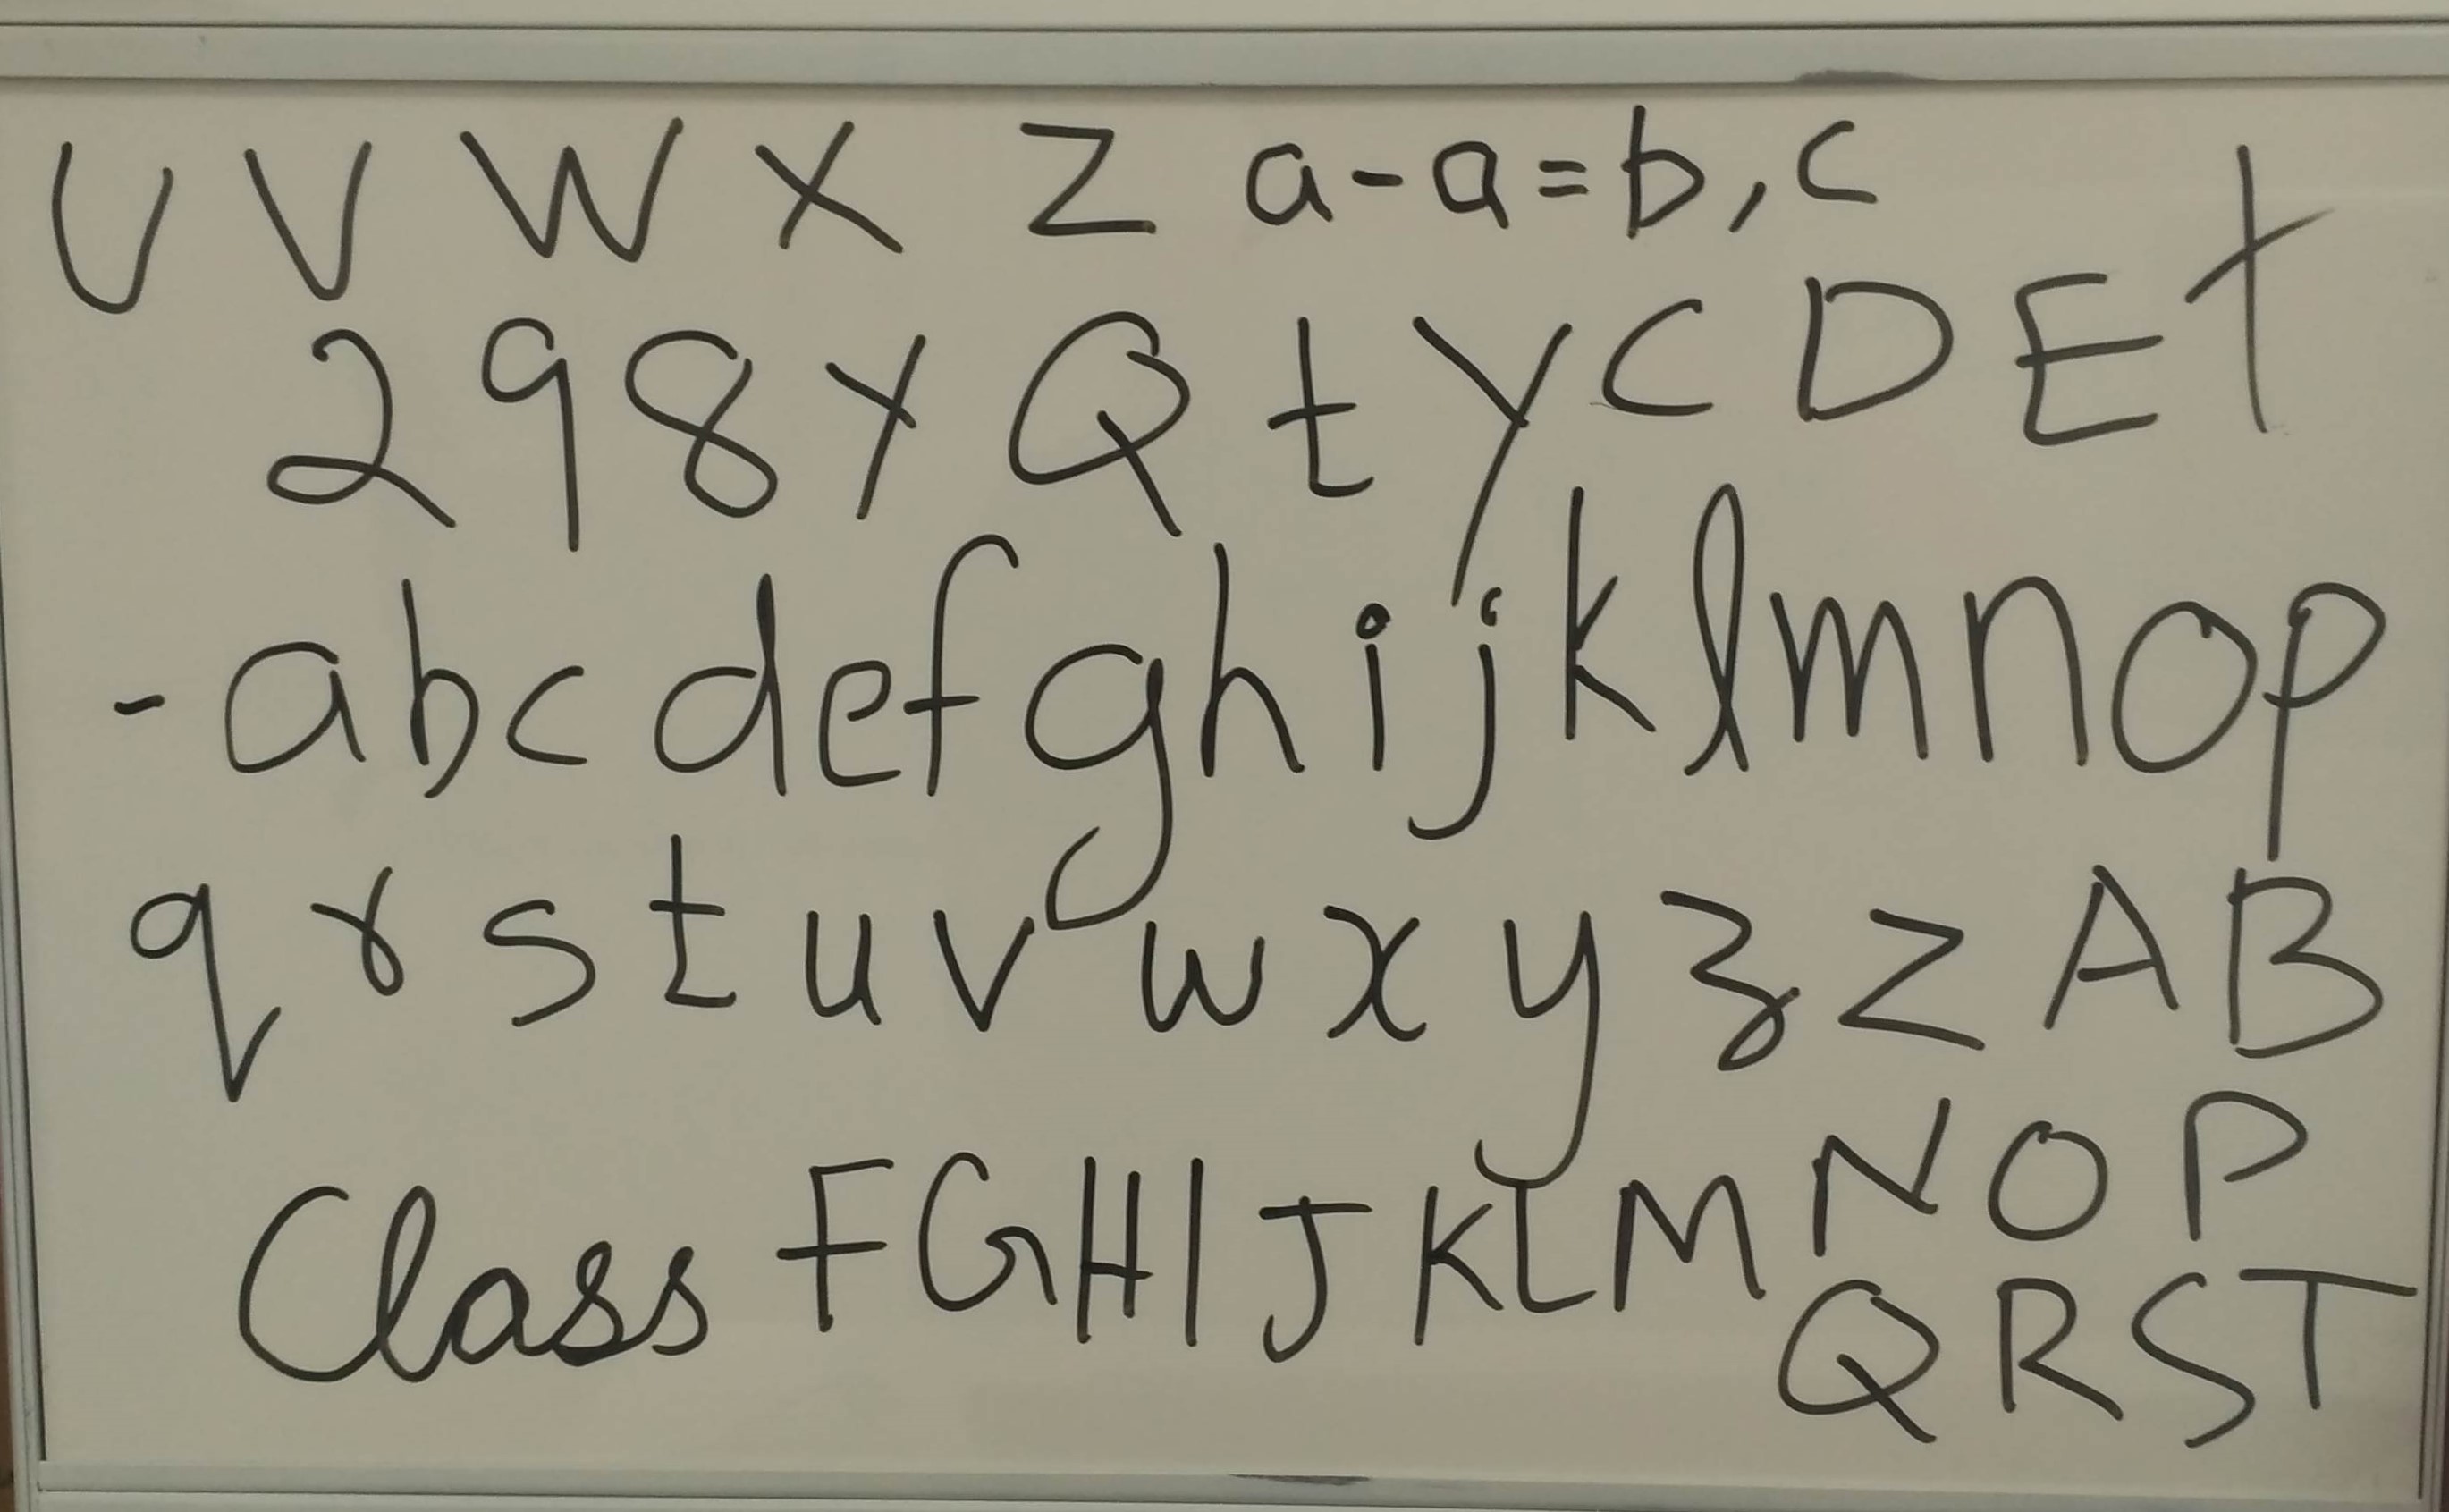 U V W X Z a-a=b,c
2 9 8 Y Q t y C D E t
- a b c d e f g h i j k l m n o p
q r s t u v w x y z Z A B
Class F G H I J K L M N O P
Q R S T